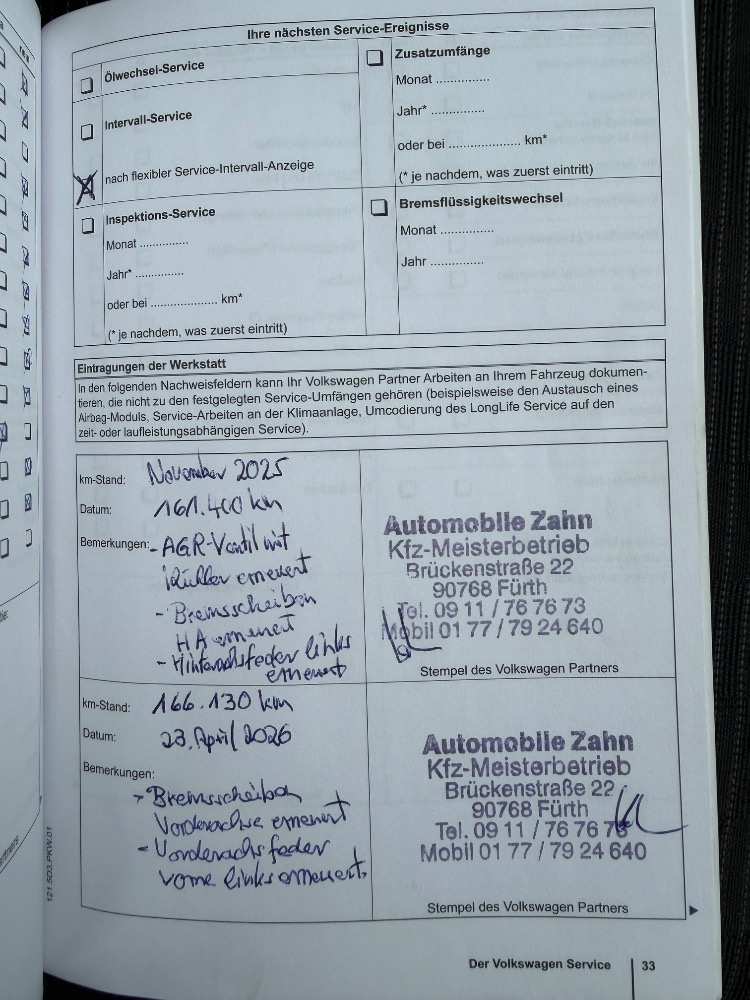 Ihre nächsten Service-Ereignisse
Ölwechsel-Service
Intervall-Service
nach flexibler Service-Intervall-Anzeige
Inspektions-Service
Monat ..............
Jahr* ..............
oder bei .................... km*
(* je nachdem, was zuerst eintritt)
Zusatzumfänge
Monat ...............
Jahr* ...............
oder bei .................... km*
(* je nachdem, was zuerst eintritt)
Bremsflüssigkeitswechsel
Monat ...............
Jahr ...............
Eintragungen der Werkstatt
In den folgenden Nachweisfeldern kann Ihr Volkswagen Partner Arbeiten an Ihrem Fahrzeug dokumen-
tieren, die nicht zu den festgelegten Service-Umfängen gehören (beispielsweise den Austausch eines
Airbag-Moduls, Service-Arbeiten an der Klimaanlage, Umcodierung des LongLife Service auf den
zeit- oder laufleistungsabhängigen Service).
km-Stand: November 2025
Datum: 161.400 km
Bemerkungen: - AGR-Ventil mit
Kühler erneuert
- Bremsscheiben
HA erneuert
- Hinterachsfeder links
erneuert
Automobile Zahn
Kfz-Meisterbetrieb
Brückenstraße 22
90768 Fürth
Tel. 09 11 / 76 76 73
Mobil 01 77 / 79 24 640
Stempel des Volkswagen Partners
km-Stand: 166.130 km
Datum: 23. April 2026
Bemerkungen:
- Bremsscheiben
Vorderachse erneuert
- Vorderachsfeder
vorne links erneuert.
Automobile Zahn
Kfz-Meisterbetrieb
Brückenstraße 22
90768 Fürth
Tel. 09 11 / 76 76 73
Mobil 01 77 / 79 24 640
Stempel des Volkswagen Partners
121.5D3.PKW.01
Der Volkswagen Service 33